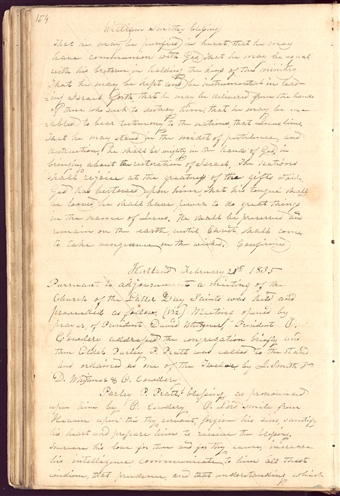 154
William Smiths blessing
That he may be purified in heart, that he may
have communion with God, that he may be equal
with his brethren in holding the keys of this ministry
That he may be kept and be instrumental in lead-
ing Israel forth, that he may be delivered from the hands
of those who seek to destroy him, that he may be en-
abled to bear testimony to the nations that Jesus lives
That he may stand in the midst of pestilence and
destruction, he shall be mighty in the hands of God, in
bringing about the restoration of Israel. The nations
shall rejoice at the greatness of the gifts which
God has bestowed upon him, That his tongue shall
be loosed, he shall have power to do great things
in the name of Jesus. He shall be preserved and
remain on the earth, until Christ shall come
to take vengeance on the wicked. Confirmed.
Kirtland February 21st 1835
Pursuant to adjournment a meeting of the
Church of the Latter Day Saints was held and
proceeded as follow, (Viz) Meeting opened by
prayer, of President David Whitmer. President O.
Cowdery addressed the congregation briefly and
then Elder Parley P. Pratt was called to the stand
and ordained as one of the Twelve by J. Smith Jr
D. Whitmer & O. Cowdery
Parley P. Pratts blessing as pronounced
upon him by O. Cowdery. O Lord smile from
Heaven upon this thy servant forgive his sins, sanctify
his heart and prepare him to receive the blessing,
Increase his love for thee and for thy cause, increase
his intelligence communicate to him all that
wisdom, that prudence and that understanding which